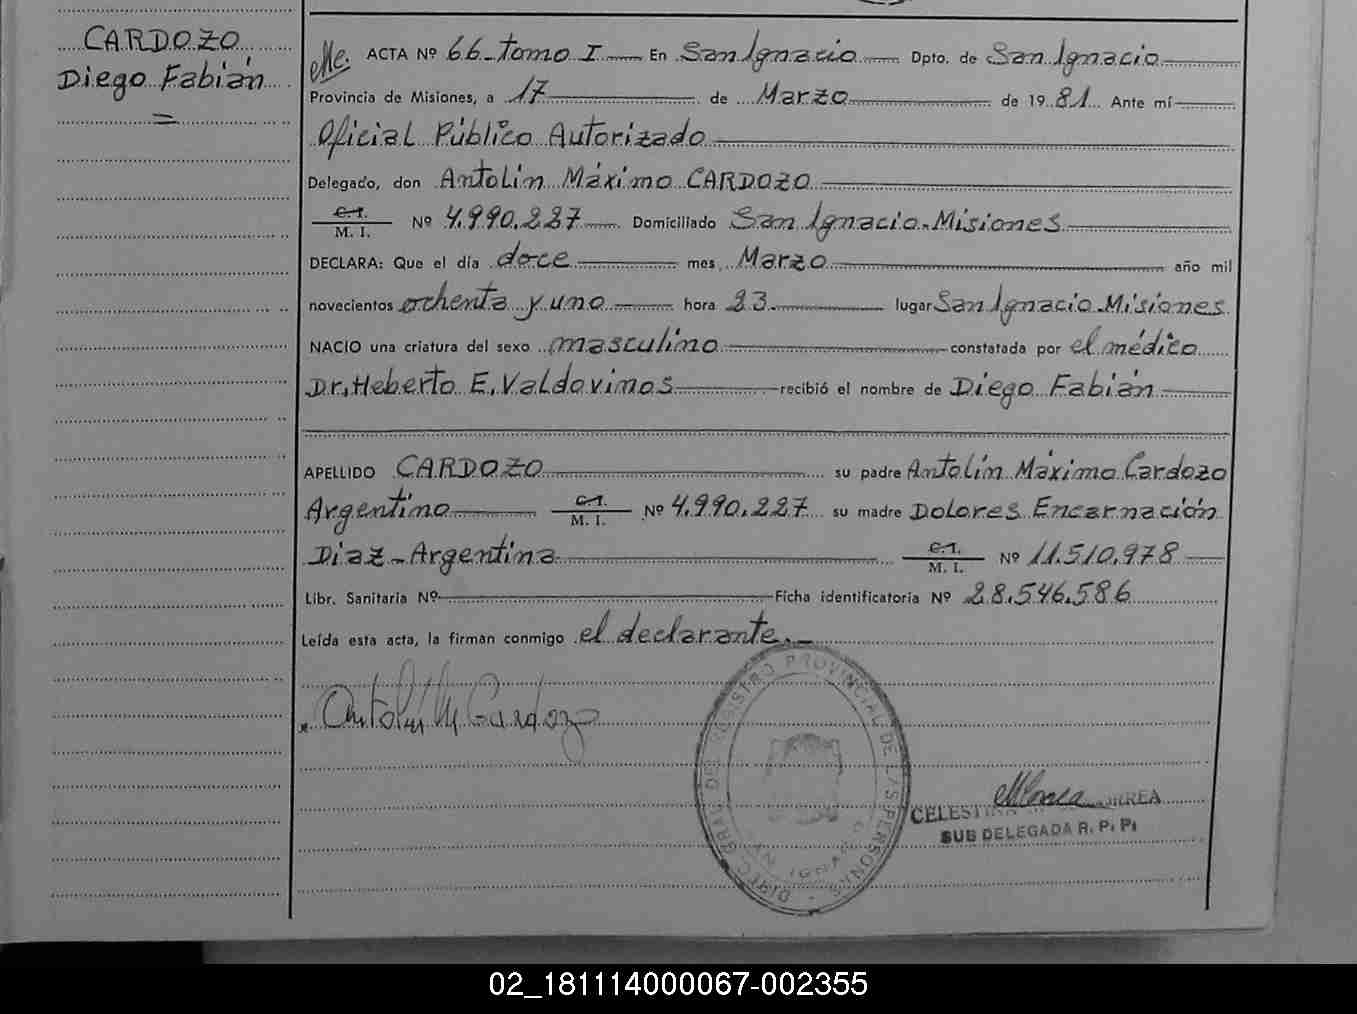 CARDOZO
Diego Fabián
=
ACTA Nº 66 - tomo I En San Ignacio Dpto. de San Ignacio
Provincia de Misiones, a 17 de Marzo de 1981 Ante mí
Oficial Público Autorizado
Delegado, don Antolín Máximo CARDOZO
C.I.
M. I. Nº 4.990.227 Domiciliado San Ignacio. Misiones
DECLARA: Que el día doce mes Marzo año mil
novecientos ochenta y uno hora 23 lugar San Ignacio Misiones
NACIO una criatura del sexo masculino constatada por el médico
Dr. Heberto E. Valdovinos recibió el nombre de Diego Fabián
APELLIDO CARDOZO su padre Antolín Máximo Cardozo
Argentino C.I. M. I. Nº 4.990.227 su madre Dolores Encarnación
Diaz - Argentina C.I. M. I. Nº 11.510.978
Libr. Sanitaria Nº Ficha identificatoria Nº 28.546.586
Leída esta acta, la firman conmigo el declarante.
Antolín M Cardozo
DIREC. GRAL. DEL REGISTRO PROVINCIAL DE LAS PERSONAS
SAN IGNACIO
SUB DELEGADA R. P. P.
02_181114000067-002355